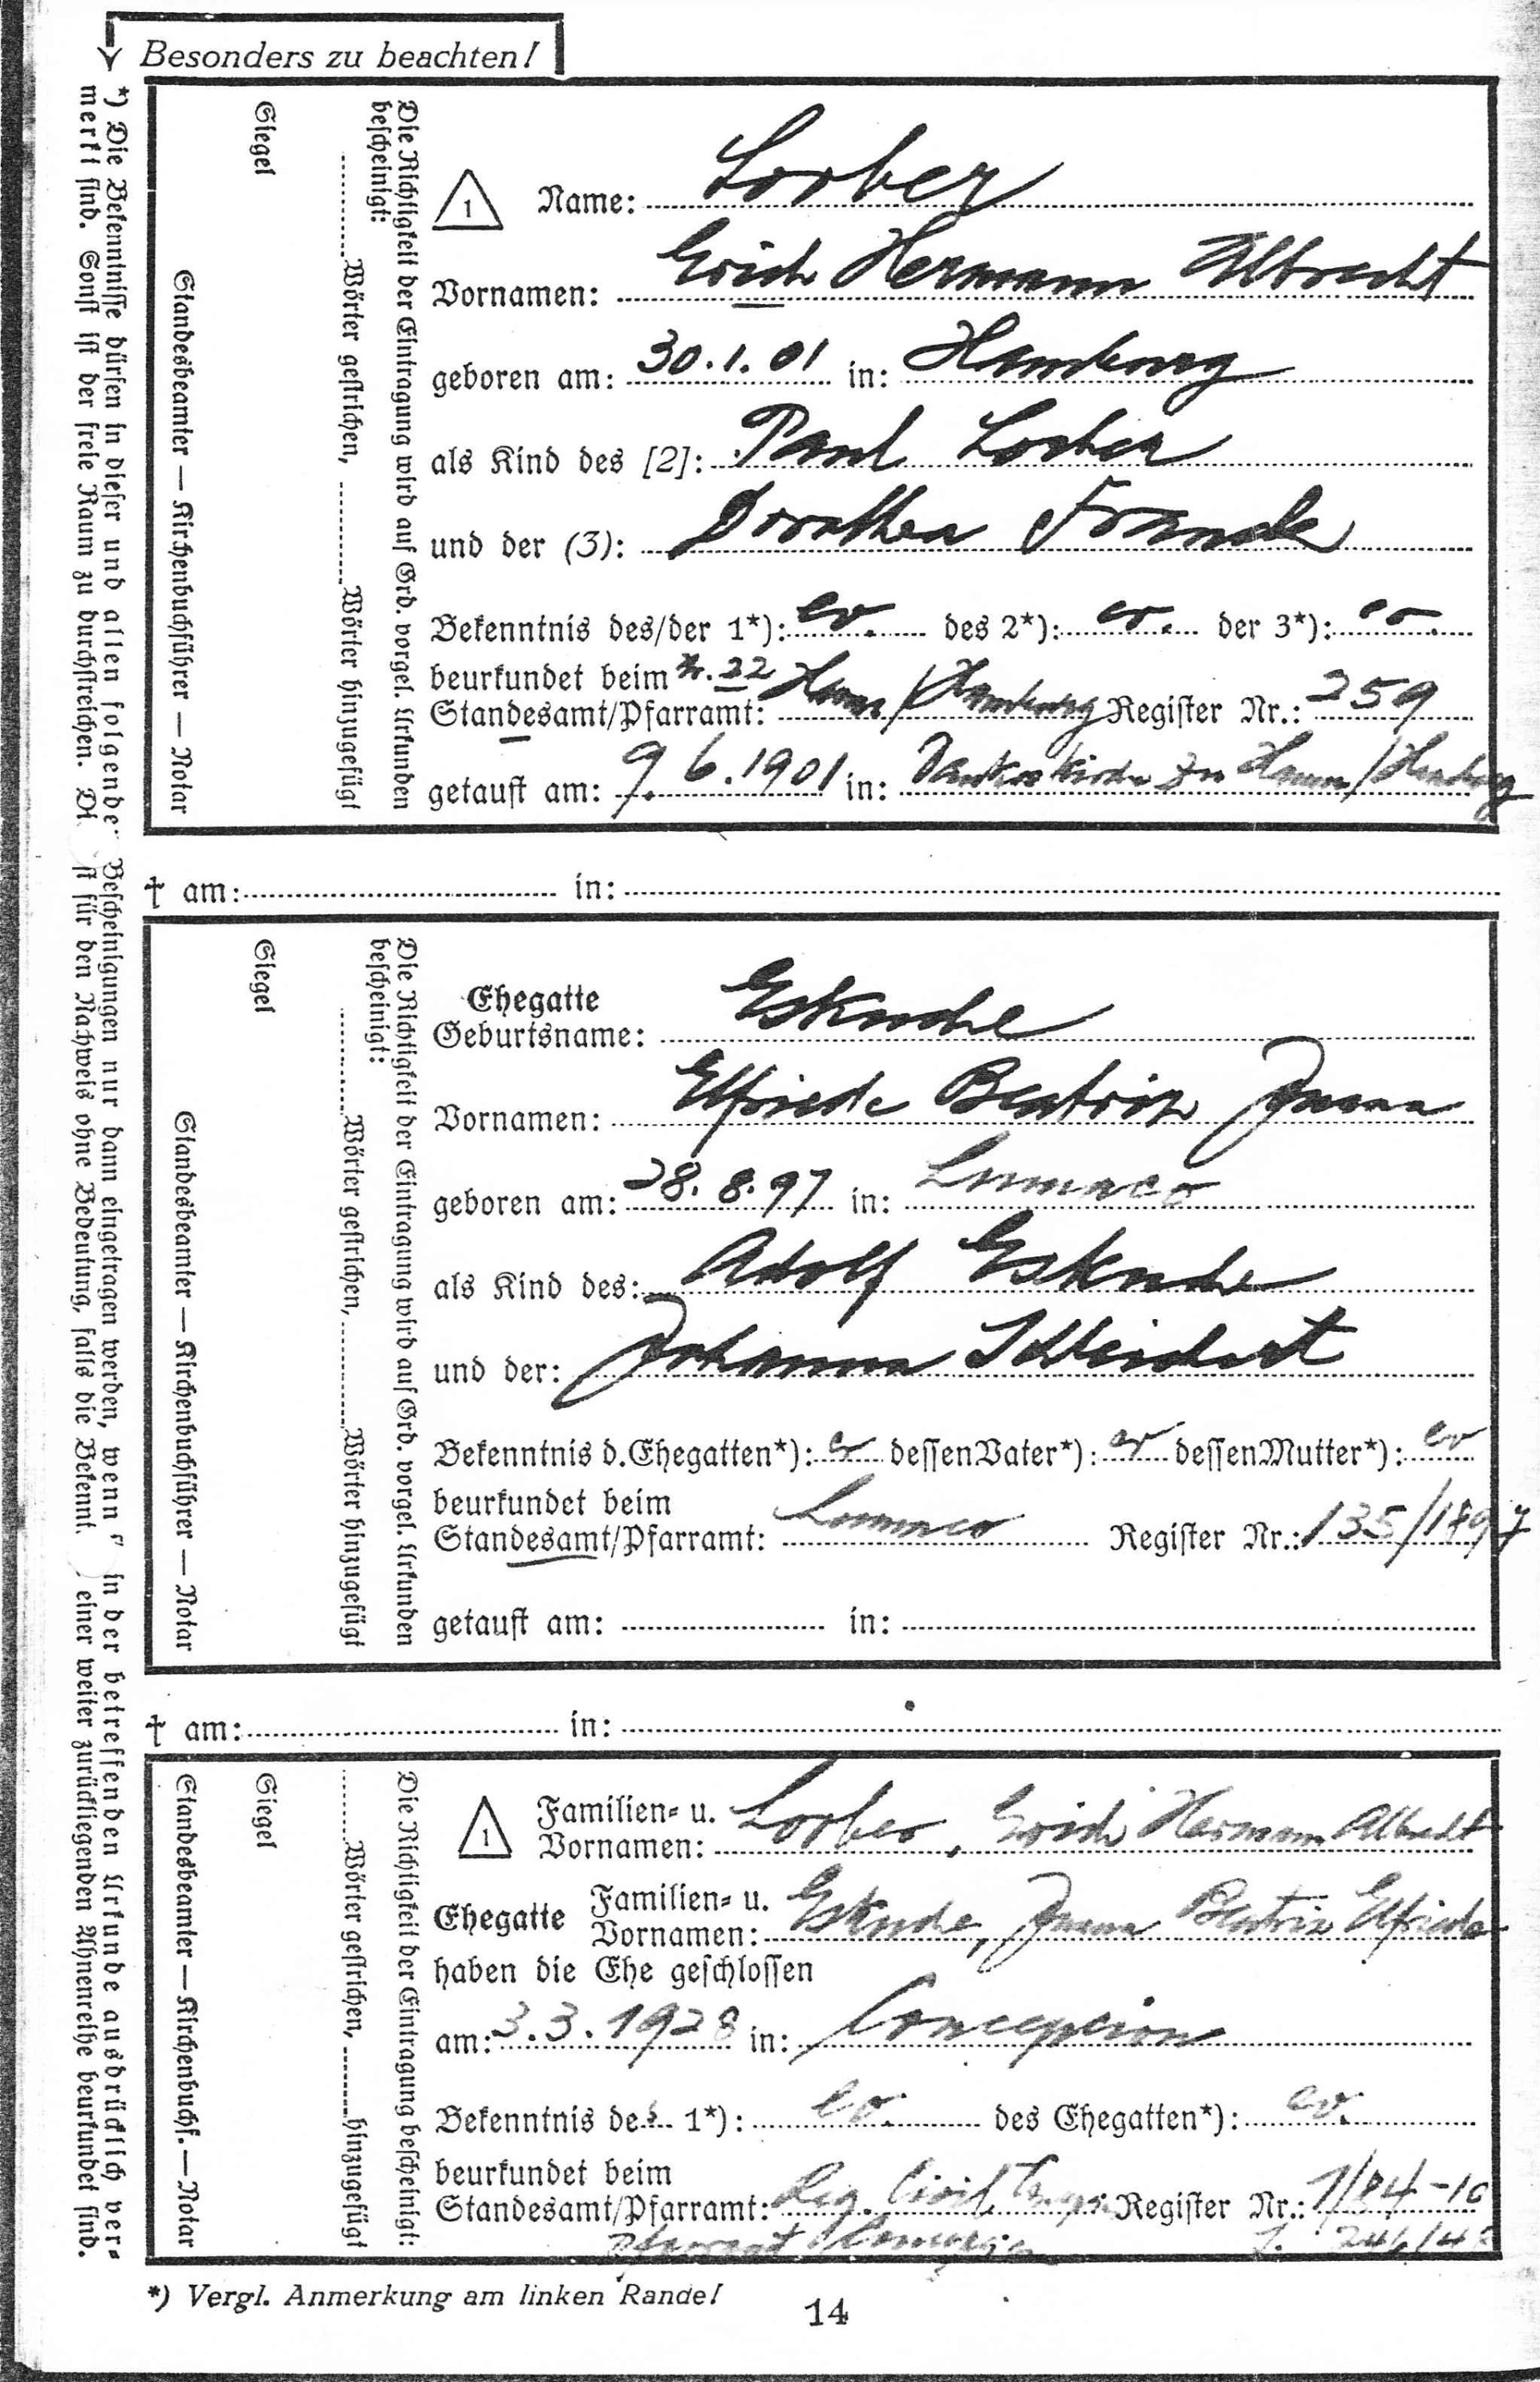 Besonders zu beachten!
*) Die Bekenntnisse dürfen in dieser und allen folgenden Bescheinigungen nur dann eingetragen werden, wenn in der betreffenden Urkunde ausdrücklich ver-
merkt sind. Sonst ist der freie Raum zu durchstreichen. ist für den Nachweis ohne Bedeutung, falls die Bekennt. einer weiter zurückliegenden Ahnenreihe beurkundet sind.
Die Richtigkeit der Eintragung wird auf Grd. vorgel. Urkunden
bescheinigt:
Wörter gestrichen, Wörter hinzugefügt
Siegel
Standesbeamter — Kirchenbuchführer — Notar
1 Name: Lorber
Vornamen: Erich Hermann Albrecht
geboren am: 30.1.01 in: Hamburg
als Kind des [2]: Paul Lorber
und der (3): Dorothea Franck
Bekenntnis des/der 1*): ev. des 2*): ev. der 3*): ev.
beurkundet beim Nr. 22
Standesamt/Pfarramt: Hamm/Hamburg Register Nr.: 259
getauft am: 9.6.1901 in: Dankeskirche zu Hamm/Hamburg
† am: in:
Die Richtigkeit der Eintragung wird auf Grd. vorgel. Urkunden
bescheinigt:
Wörter gestrichen, Wörter hinzugefügt
Siegel
Standesbeamter — Kirchenbuchführer — Notar
Ehegatte
Geburtsname: Eskuche
Vornamen: Elfriede Beatriz Juana
geboren am: 28.8.97 in: Lumaco
als Kind des: Adolf Eskuche
und der: Johanna
Bekenntnis d. Ehegatten*): ev dessen Vater*): ev dessen Mutter*): ev
beurkundet beim
Standesamt/Pfarramt: Lumaco Register Nr.: 135/1897
getauft am: in:
† am: in:
Die Richtigkeit der Eintragung bescheinigt:
Wörter gestrichen, hinzugefügt
Siegel
Standesbeamter — Kirchenbuchf. — Notar
1 Familien= u.
Vornamen: Lorber, Erich Hermann Albrecht
Ehegatte Familien= u.
Vornamen: Eskuche, Juana Beatriz Elfriede
haben die Ehe geschlossen
am: 3.3.1928 in: Concepcion
Bekenntnis des 1*): ev. des Ehegatten*): ev.
beurkundet beim
Standesamt/Pfarramt: Reg. Civil Register Nr.: 1/84-10
Pfarramt
*) Vergl. Anmerkung am linken Rande!
14